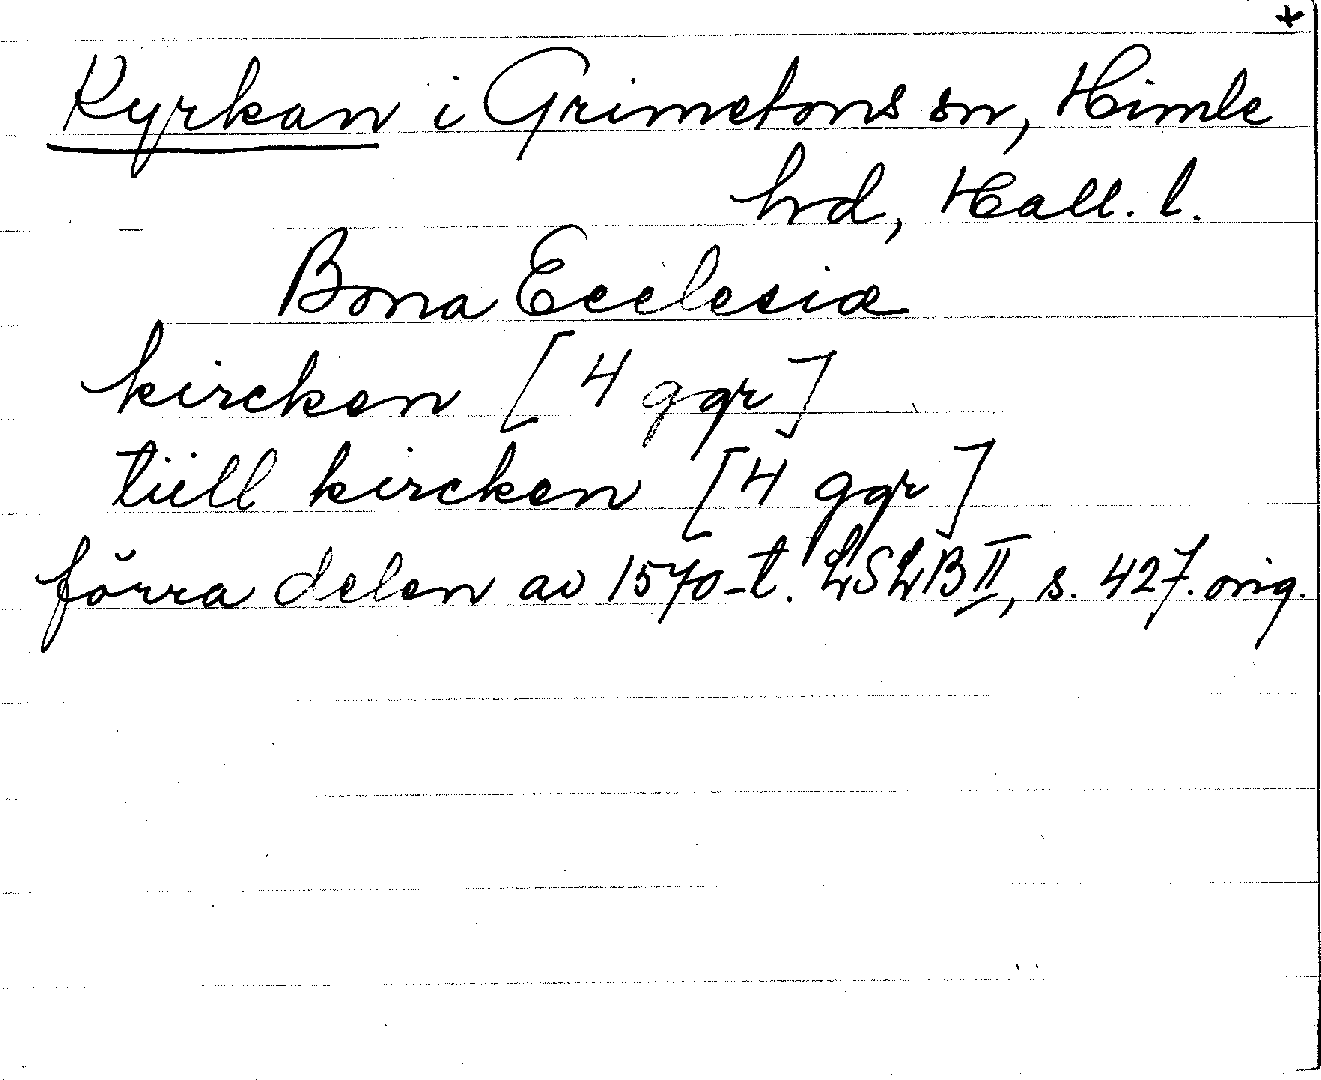 +
Kyrkan i Grimetons sn, Himle
hd, Hall. l.
Bona Ecclesiæ
kircken [4 ggr]
tiill kircken [4 ggr]
förra delen av 1570-t. LSLB II, s. 427. orig.